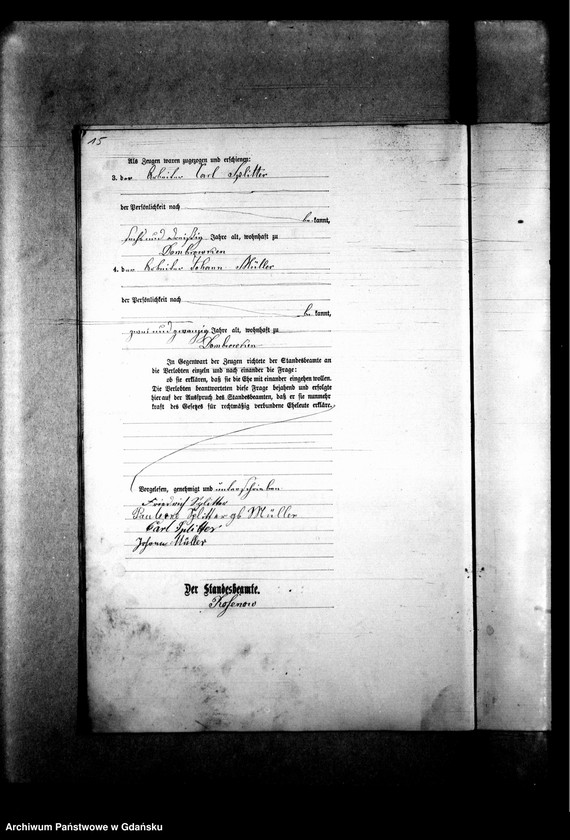 15
Als Zeugen waren zugezogen und erschienen:
3. der Arbeiter Carl Splitter
der Persönlichkeit nach
be kannt,
sechs und dreißig Jahre alt, wohnhaft zu
Dombrowken
4. der Arbeiter Johann Müller
der Persönlichkeit nach
be kannt,
zwei und zwanzig Jahre alt, wohnhaft zu
Dombrowken
In Gegenwart der Zeugen richtete der Standesbeamte an
die Verlobten einzeln und nach einander die Frage:
ob sie erklären, daß sie die Ehe mit einander eingehen wollen.
Die Verlobten beantworteten diese Frage bejahend und erfolgte
hierauf der Ausspruch des Standesbeamten, daß er sie nunmehr
kraft des Gesetzes für rechtmäßig verbundene Eheleute erkläre.
Vorgelesen, genehmigt und unterschrieben
Friedrich Splitter
Splitter gb Müller
Carl Splitter
Johann Müller
Der Standesbeamte.
Rosenow
Archiwum Państwowe w Gdańsku